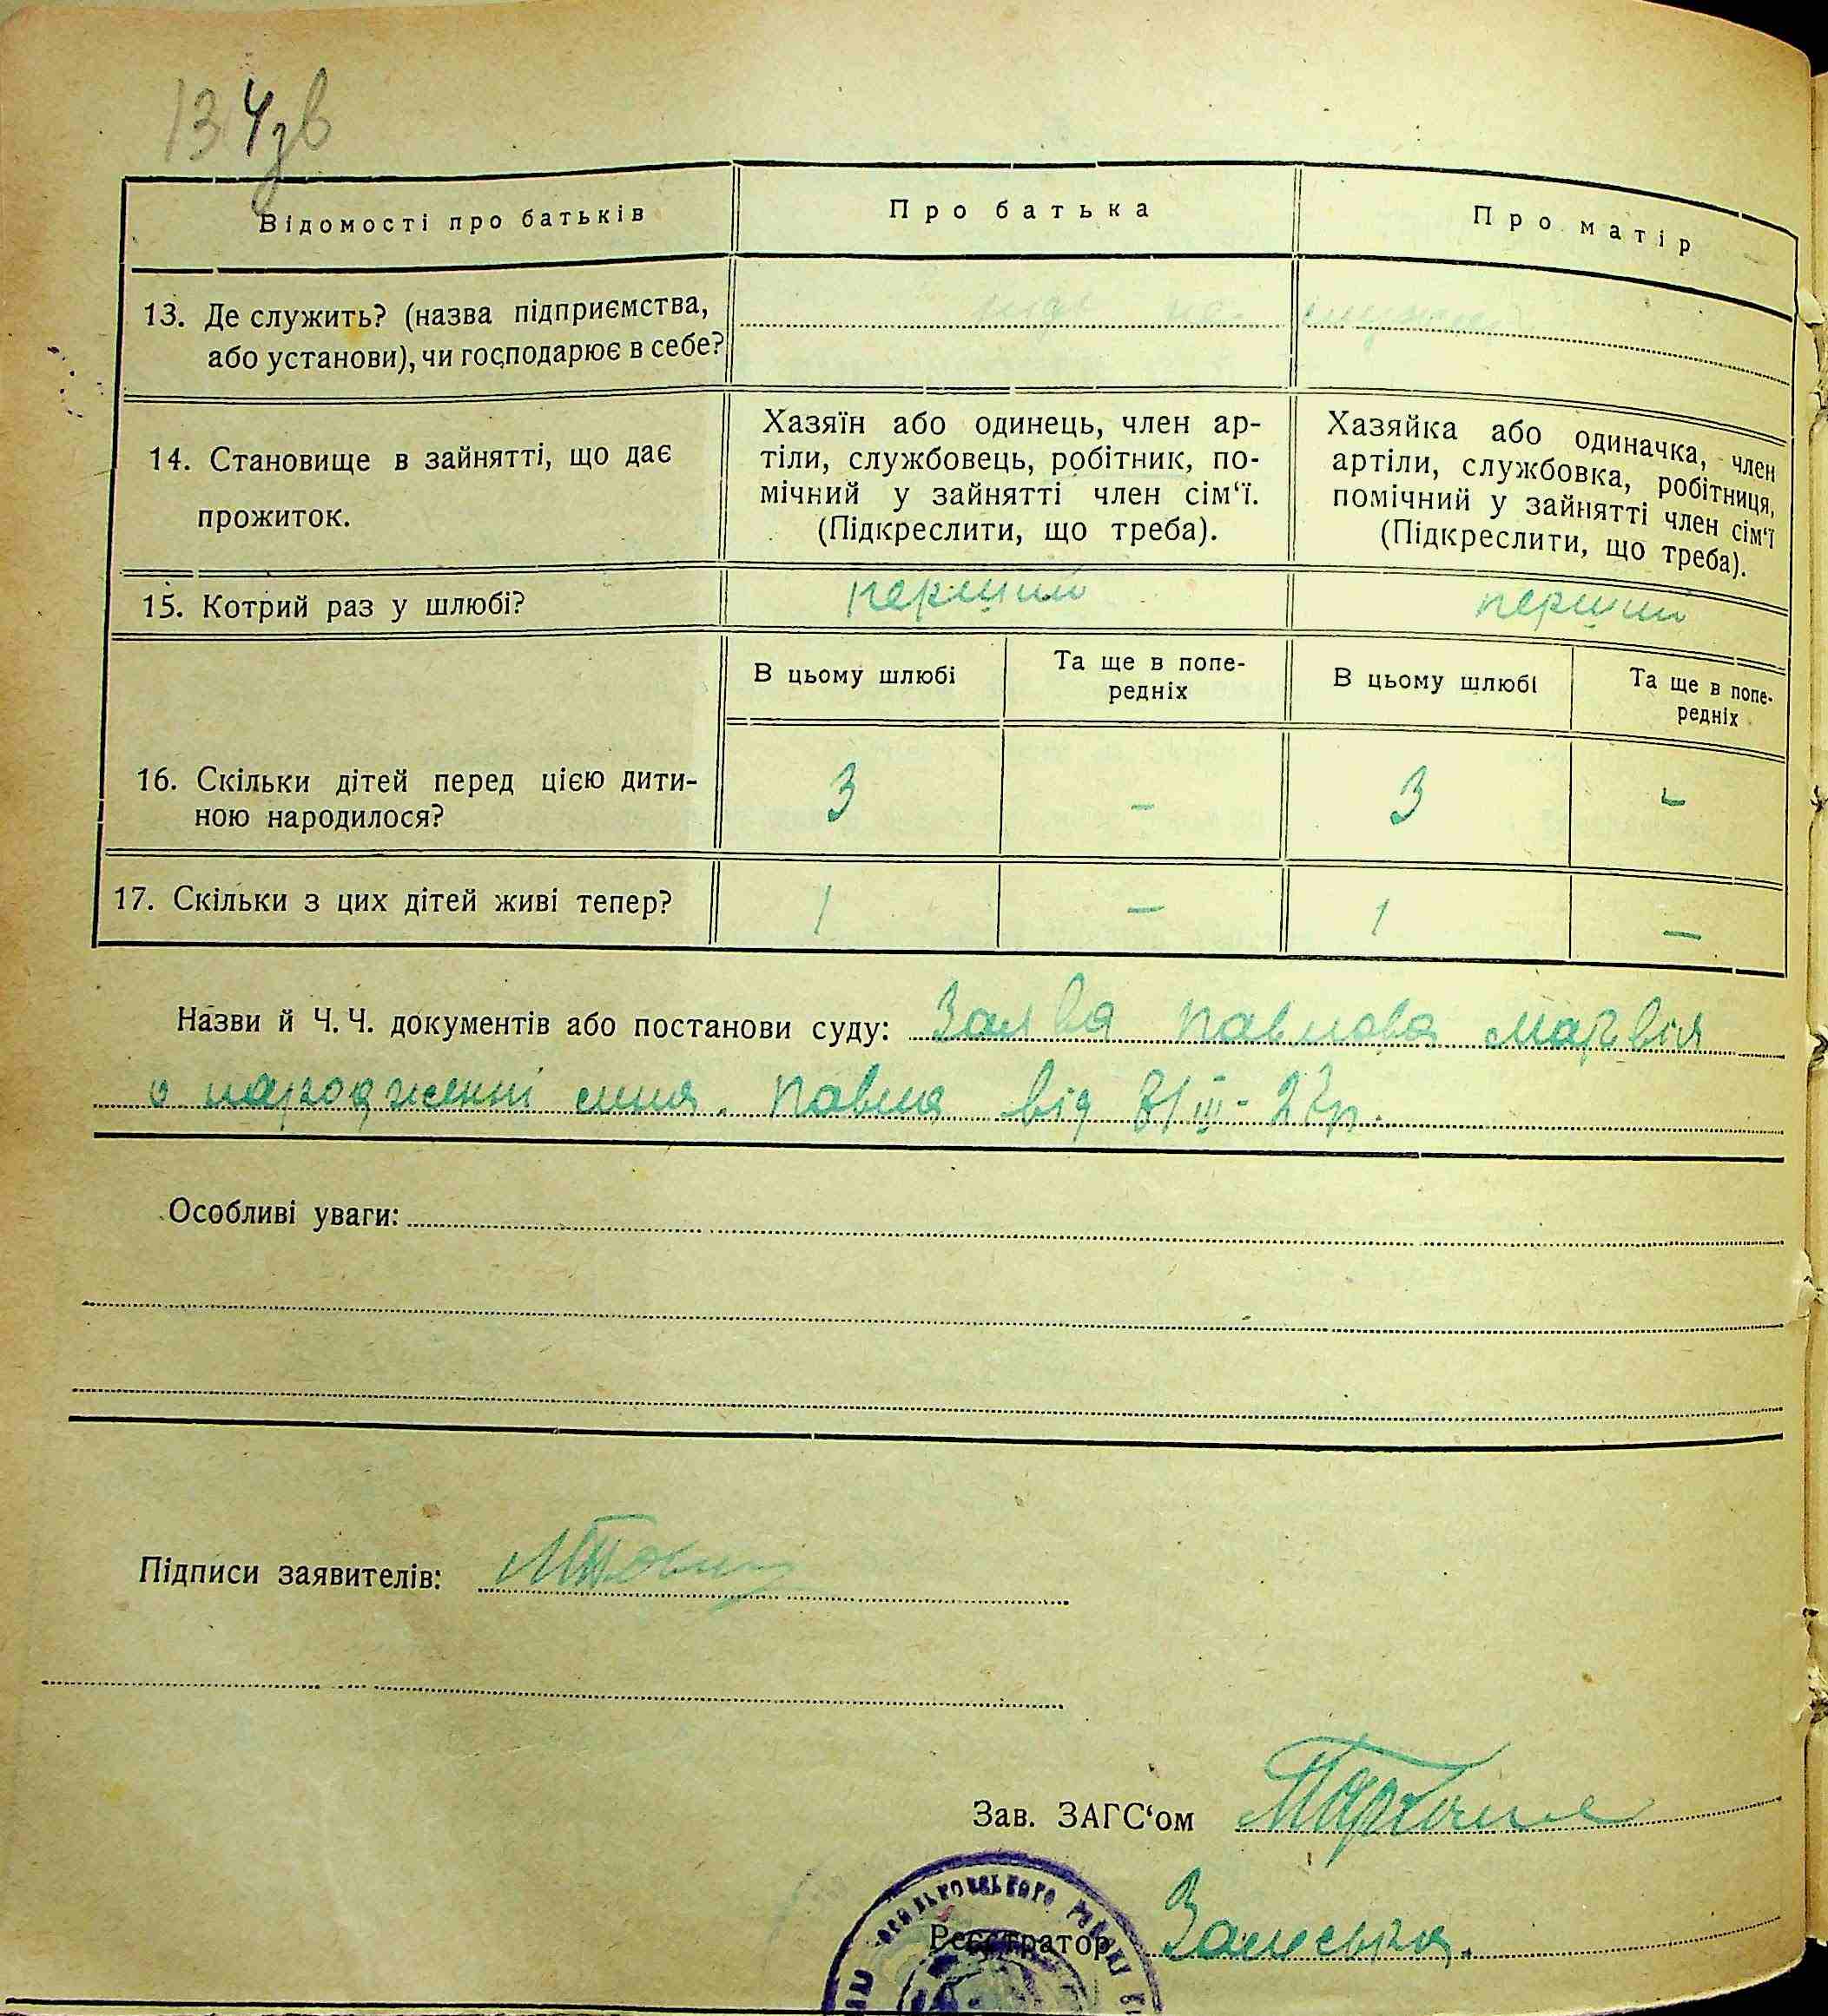 134зв
Відомості про батьків
Про батька
Про матір
13. Де служить? (назва підприємства,
або установи), чи господарює в себе?
14. Становище в зайнятті, що дає
прожиток.
Хазяїн або одинець, член ар-
тіли, службовець, робітник, по-
мічний у зайнятті член сім‘ї.
(Підкреслити, що треба).
Хазяйка або одиначка, член
артіли, службовка, робітниця,
помічний у зайнятті член сім‘ї
(Підкреслити, що треба).
15. Котрий раз у шлюбі?
перший
перший
В цьому шлюбі
Та ще в попе-
редніх
В цьому шлюбі
Та ще в попе-
редніх
16. Скільки дітей перед цією дити-
ною народилося?
3
-
3
-
17. Скільки з цих дітей живі тепер?
1
—
1
—
Назви й Ч. Ч. документів або постанови суду: Заява Павлова
о народженні сина Павла від
Особливі уваги:
Підписи заявителів:
Зав. ЗАГС‘ом
Реєстратор